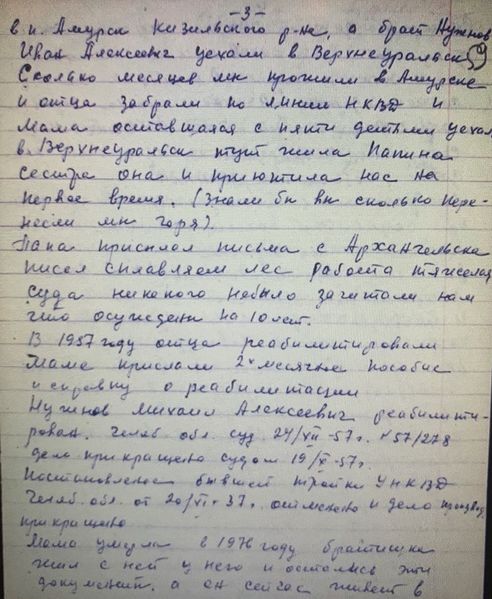 -3-
в п. Амурск Кизильского р-на, а брат Нужнов
Иван Алексеевич уехали в Верхнеуральск
Сколько месяцев мы прожили в Амурске
и отца забрали по линии НКВД и
Мама оставшаяся с пяти детьми уехал
в Верхнеуральск тут жила Папина
сестра она и приютила нас на
первое время. (Знали бы вы сколько пере-
несли мы горя).
Папа присылал письма с Архангельска
писал сплавляем лес работа тяжелая
суда никакого небыло зачитали нам
что осужден на 10 лет.
В 1957 году отца реабилитировали
Маме прислали 2х месячное пособие
и справку о реабилитации
Нужнов Михаил Алексеевич реабилити-
рован. Челяб обл. суд 24/VII-57г. №57/278
дело прикращено судом 19/X-57г.
Постановление бывшей тройки УНКВД
Челяб. обл. от 20/VI-37г. отменено и дело
прикращено
Мама умерла в 1976 году братишка
жил с ней у него и остались эти
документ. а он сейчас живет в